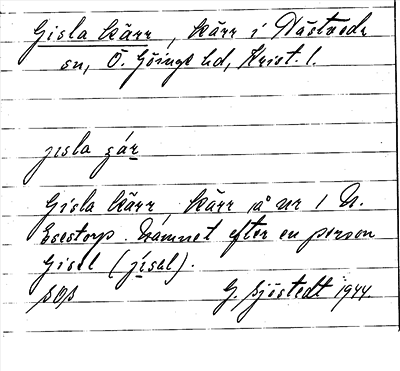 Gisla kärr, kärr i Nästveds
sn, Ö. Göinge hd, Krist. l.
jɪsla çár
Gisla kärr, kärr på nr 1 N.
Esestorp. Namnet efter en person
Gisel (jísəl).
SOS G. Sjöstedt 1944.